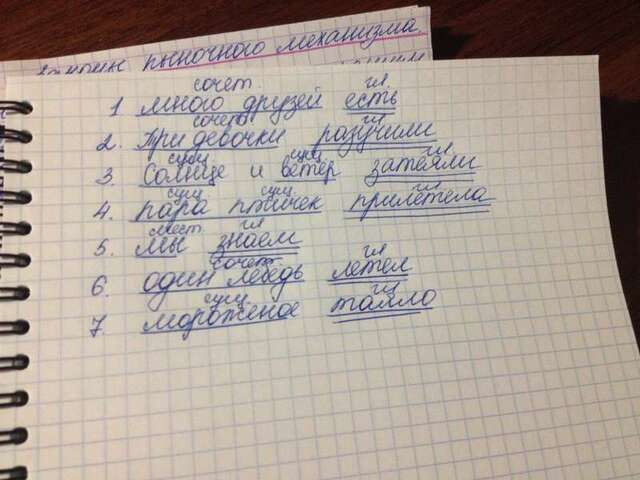 рыночного механизма
сочет гл.
1 много друзей есть
сочет гл
2. Три девочки разучили
сущ сущ гл.
3. Солнце и ветер затеяли
сущ сущ. гл
4. пара птичек прилетела
мест. гл
5. мы знаем
сочет гл
6. один лебедь летел
сущ гл
7. мороженое таяло